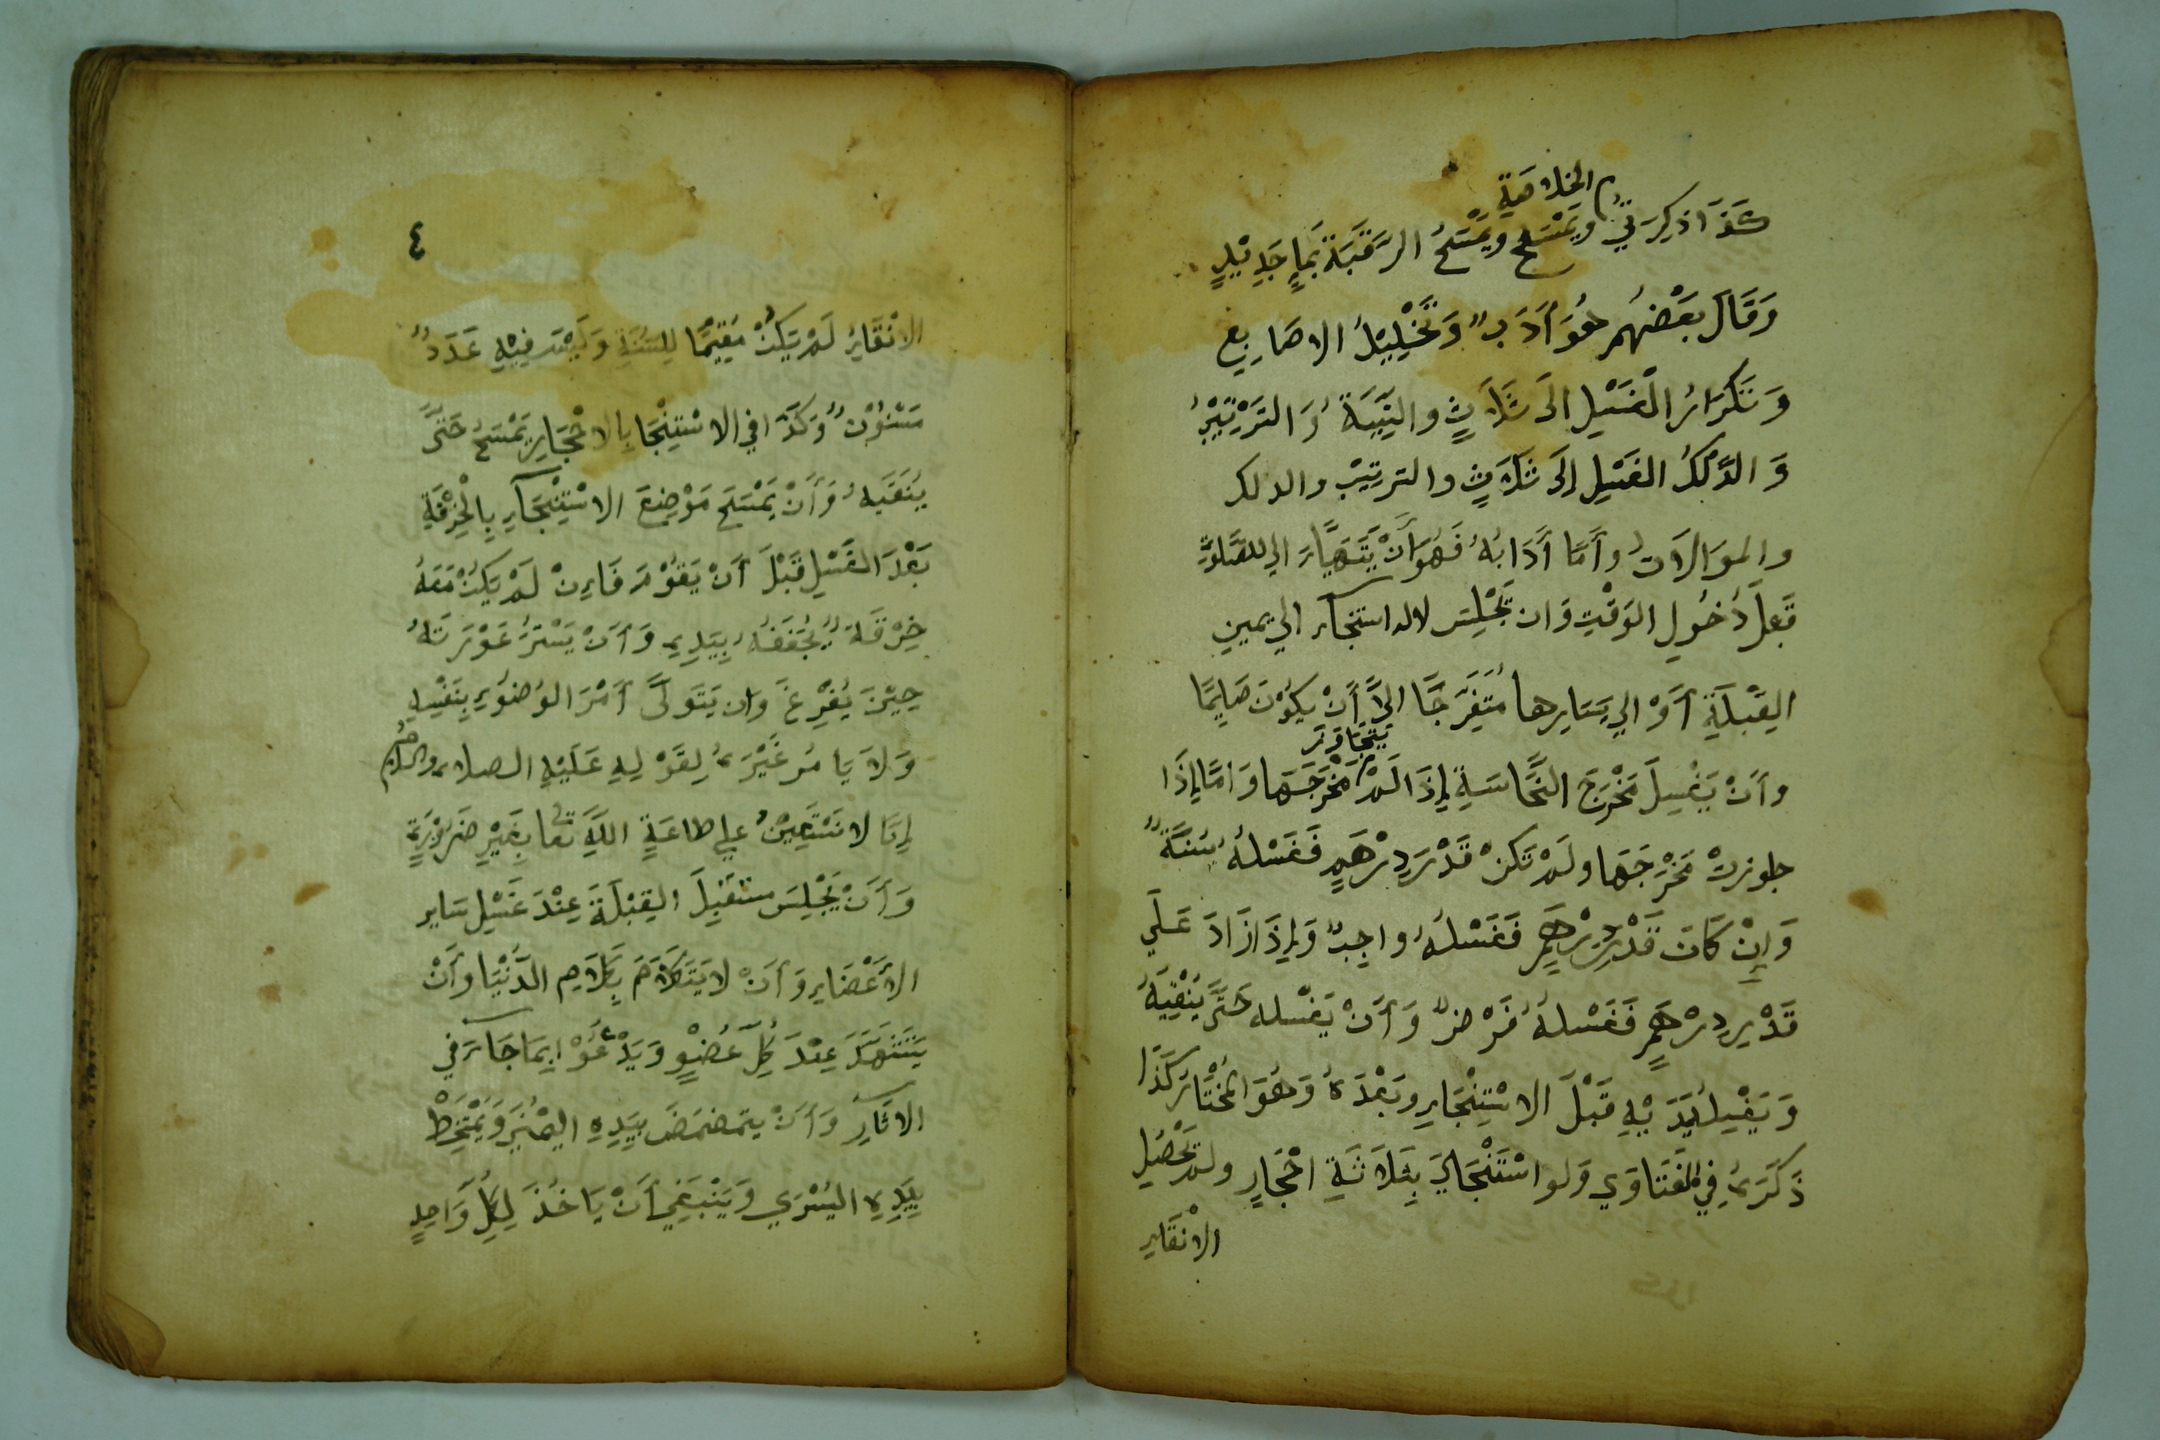 الخلاصة
كَذَا ذُكِرَ فِي وَيَمْسَح وَيَمْسَحُ الرَّقَبَةَ بِمَاءٍ جَدِيْدٍ
وَقَالَ بَعْضُهُم هُوَ أَدَبٌ وَتَخْلِيْلُ الاصَابِع
وَتَكْرَارُ الْغَسْلِ اِلَى ثَلَاثٍ والنِّيَّةُ وَالتَرْتِيْبُ
وَالدَّلْكُ الغَسْلِ إِلَى ثَلَاثٍ والترتِيْب والدلك
والموَالَاتُ وأَمَّا أَدَابُهُ فَهُوَ أَنْ يَتَهَيَّاءَ الي للصَّلوةِ
قَبلَ دُخُولِ الوَقْتِ وَان يَجْلِسَ لاله استنجآء الي يمينِ
القِبْلَةِ أَوْ الي يَسَارِها مُتَفَرِّجًا اِلَّا أَنْ يكُوْنَ صَايِمًا
يَتَجَاوَزْ
وأَنْ يَغْسِلَ مَخْرَجَ النَّجَاسَةِ إِذَا لَمْ مَخْرَجَهَا وَامَّا إِذَا
جاوزتْ مَخْرَجَهَا ولَمْ تَكنْ قَدْرَ دِرْهَمٍ فَغَسْلُهُ سُنَّةٌ
وَاِنْ كَانَ قَدْرَ دِرْهَمٍ فَغَسْلُهُ واجِبٌ وَاِذَا زَادَ عَلَي
قَدْرِ دِرْهَمٍ فَغَسْلهُ فَرْضٌ وَأَنْ يَغْسله حَتَّى يُنْقِيَهُ
وَيَغْسِلُ يَدَيْهِ قَبْلَ الاسْتِنْجَاءِ وبَعْدَهُ وَهُوَ المُخْتَارُ كَذَا
ذَكَرَهُ فِي الفَتَاوَي وَلَو اسْتَنْجَاءَ بِثَلَاثَةِ احْجَارٍ ولم يَحْصُلِ
الاِنْقَاءِ
٤
الاِنْقَاءِ لَمْ يَكُنْ مُقِيْمًا لِلسُّنَّةِ وَلَيْسَ فِيْهِ عَدَدٌ
مَسْنُوْنٌ وَكَذَا في الاسْتِنْجَا بِالاحْجَارِ يَمْسَحُ حَتَّى
يُنَقِّيَهُ وَأَنْ يَمْسَحَ مَوْضِعَ الاسْتِنْجَآءِ بِالْخِرْقَةِ
بَعْدَ الغَسْلِ قَبْلَ أَنْ يَقُوْمَ فَاِنْ لَمْ يَكُنْ مَعَهُ
خِرْقَةٌ يُجَفِّفُهُ بِيَدِهِ وَأَنْ يَسْتَرَ عَوْرَتَهُ
حِيْنَ يُفْرِغَ وَان يَتَوَلَّى أَمْرَ الوُضُوْءِ بِنَفْسِهِ
وَلَا يَامُر غَيْرَهُ لِقَوْلِهِ عَلَيْهِ الصلاه والسلام
اِنَّا لا نَسْتَعِيْنُ علي طاعَةِ اللَّهِ تعا بِغَيْرِ ضَرُوْرَةٍ
وَأَنْ يَجْلِسَ مستَقْبِلَ القِبْلَةَ عِنْدَ غَسْلِ سَايرِ
الأَعْضَاءِ وَأَنْ لا يَتَكَلَّمَ بِكَلَامِ الدُّنْيَا وأَنْ
يَتَشَهَّدَ عِنْدَ كُلِّ عُضْوٍ وَيَدْعُوْا بِمَا جَآءَ في
الاثَارِ وَأَنْ يتمضمَضَ بِيَدِهِ اليُمْنَى وَيَمْتَخِطْ
بِيَدِهِ اليُسْرَي وَيَنْبَغِي أَنْ يَاخُذَ لِكُلِّ وَاحِدٍ